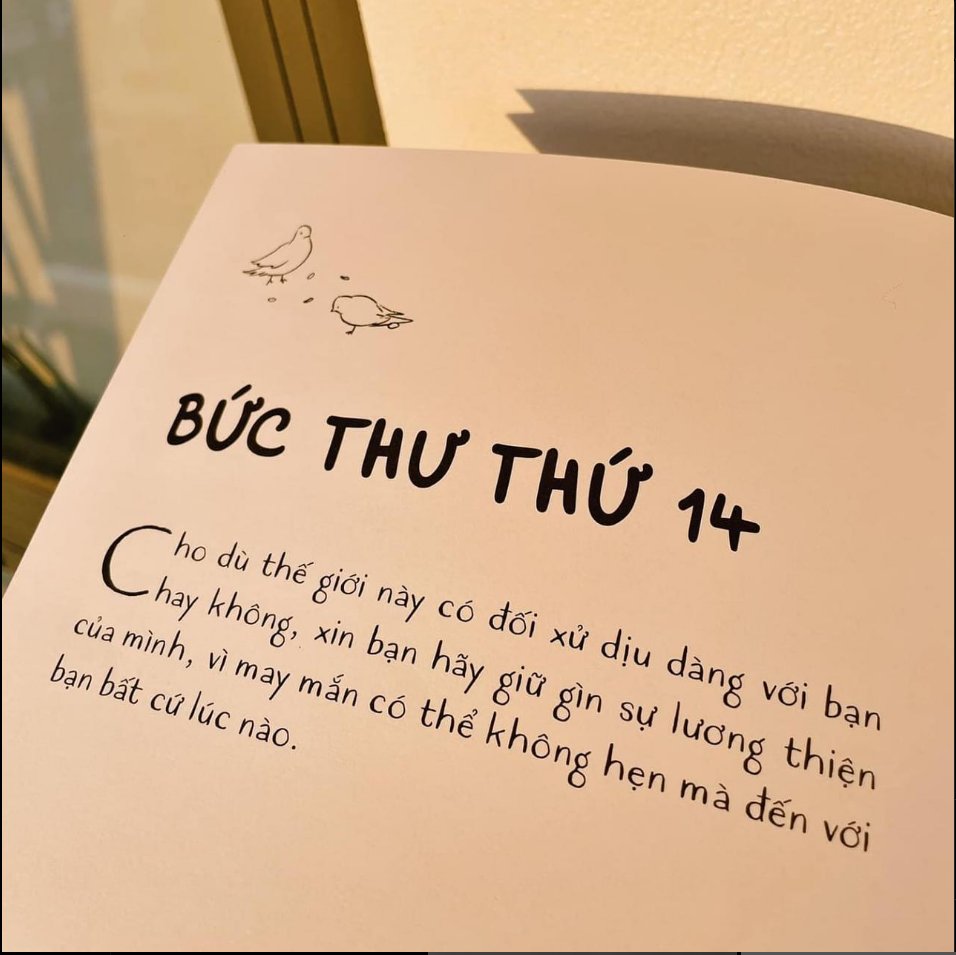 BỨC THƯ THỨ 14
Cho dù thế giới này có đối xử dịu dàng với bạn
hay không, xin bạn hãy giữ gìn sự lương thiện
của mình, vì may mắn có thể không hẹn mà đến với
bạn bất cứ lúc nào.